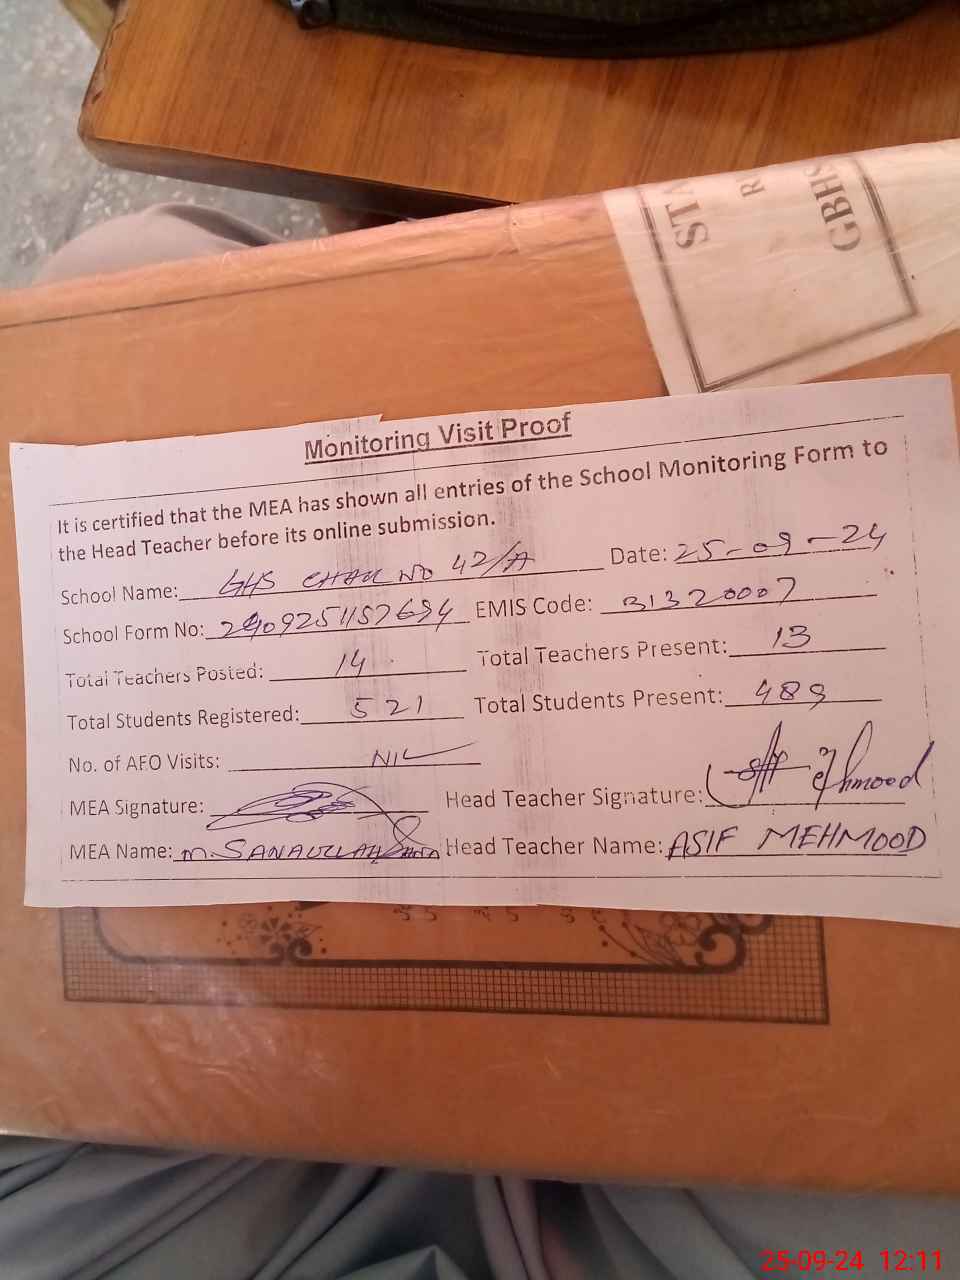 STA
R
GBHS
Monitoring Visit Proof
It is certified that the MEA has shown all entries of the School Monitoring Form to
the Head Teacher before its online submission.
School Name: GHS CHAK NO 42/A Date: 25-09-24
School Form No: EMIS Code: 31320007
Total Teachers Posted: 14 Total Teachers Present: 13
Total Students Registered: 521 Total Students Present: 489
No. of AEO Visits: NIL
MEA Signature: Head Teacher Signature:
MEA Name: M. SANAULLAH Head Teacher Name: ASIF MEHMOOD
25-09-24 12:11